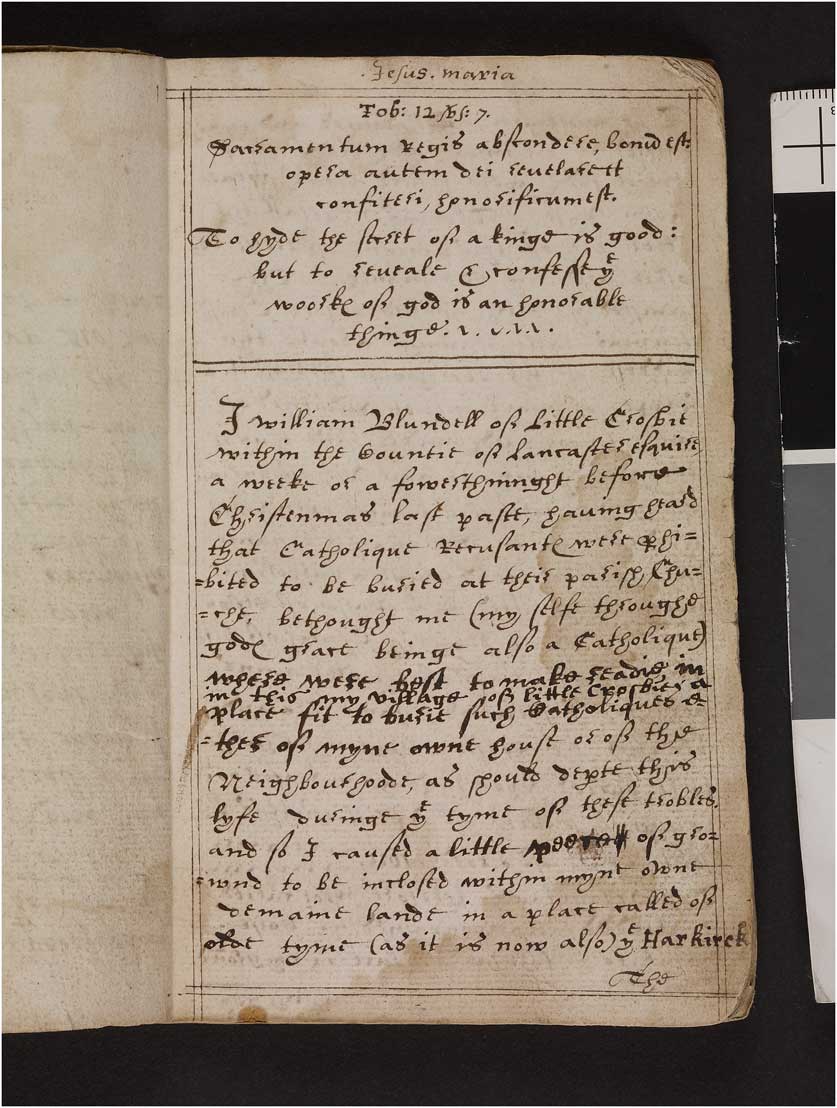 Jesus. maria
Tob: 12 vs: 7.
Sacramentum Regis abscondere, bonū est:
opera autem dei revelare et
confiteri, honorificum est.
To hyde the secret of a kinge is good:
but to reveale & confesse yᵉ
woorkꝭ of god is an honorable
thinge.
I william Blundell of Little Crosbie
within the Countie of Lancaster esquire
a weeke or a fowerthninght before
Christenmas last paste, having heard
that Catholique Recusantꝭ were ꝓhi=
=bited to be buried at their parish Chu=
=che, bethought me (my selfe throughe
godꝭ grace beinge also a Catholique)
where were best to make readie in
in this my village of little Crosbie a
place fit to burie such Catholiques ei
=ther of myne owne house or of the
Neighbourhoode, as should deꝑte this
lyfe duringe yᵉ tyme of these trobles.
and so I caused a little peece of gro=
=wnd to be inclosed within myne owne
demaine lande in a place called of
olde tyme (as it is now also) yᵉ Harkirck
The